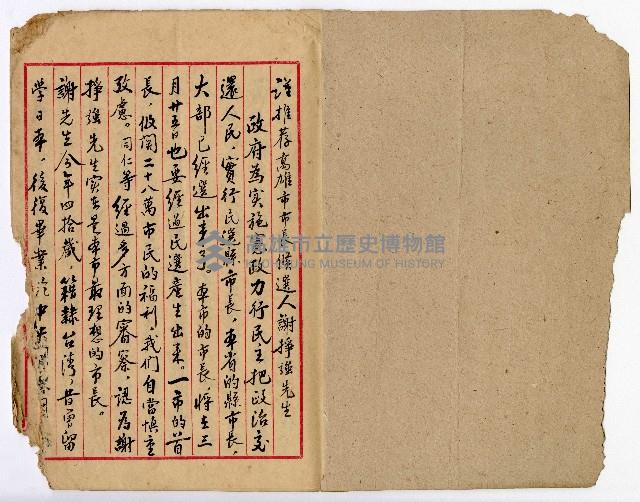 謹推荐高雄市市長候選人謝掙強先生
政府為實施憲政力行民主把政治交
還人民，實行民選縣市長，本省的縣市長，
大部已經選出來了。本市的市長將在三
月廿五日也要經過民選產生出來。一市的首
長，攸關二十八萬市民的福利，我們自當慎重
考慮。同仁等經過多方面的審察，認為謝
掙強先生实在是本市最理想的市長。
謝先生今年四拾歲，籍隸台湾，昔曾留
學日本，後復畢業於中央
高雄市立歷史博物館
KAOHSIUNG MUSEUM OF HISTORY